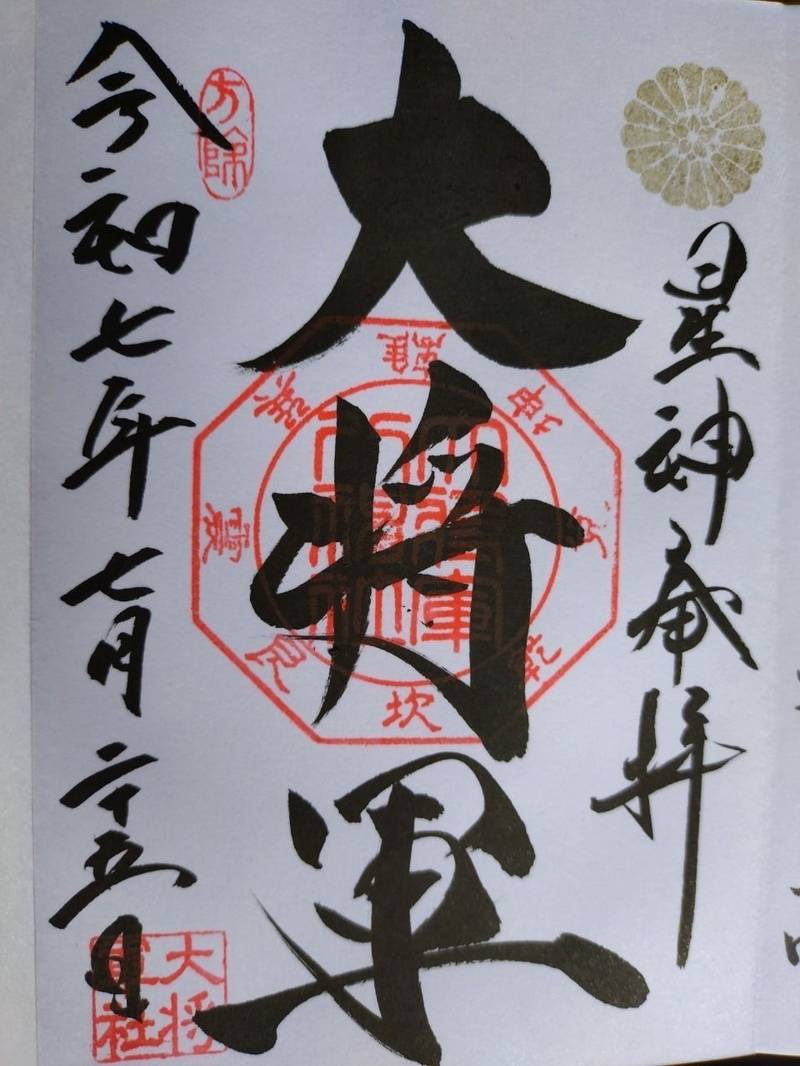 星神奉拝
大将軍
離
坤
兌
乾
坎
艮
震
巽
大将軍
八神社
方除
令和七年七月二十五日
大将
軍社